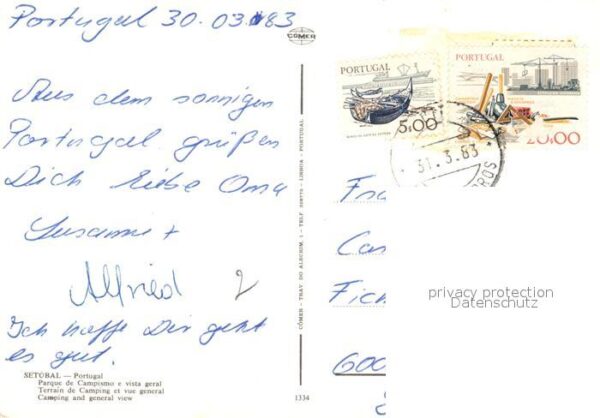 Portugal 30.03.83
COMER
Aus dem sonnigen
Portugal grüßen
Dich liebe Oma
Susanne +
Alfried
2
Ich hoffe Dir geht
es gut.
SETÚBAL — Portugal
Parque de Campismo e vista geral
Terrain de Camping et vue general
Camping and general view
1334
COMER - TRAV. DO ALECRIM, 1 - TELF - LISBOA - PORTUGAL
PORTUGAL
5,00
PORTUGAL
20,00
31.3.83
ROS
Fra
Cas
Fich
600
privacy protection
Datenschutz